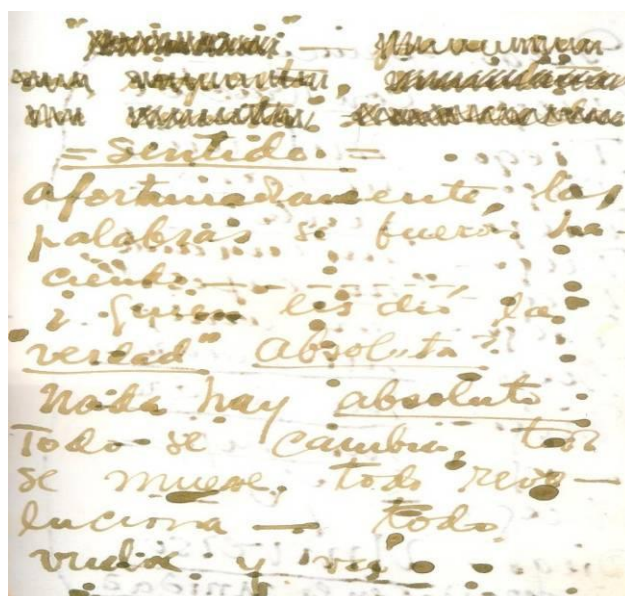 = sentido. =
afortunadamente, las
palabras se fueron ha-
ciendo
¿Quien les dió la
verdad" absoluta"?
Nada hay absoluto.
Todo se cambia, todo
se mueve, todo revo-
luciona — todo
vuela y va